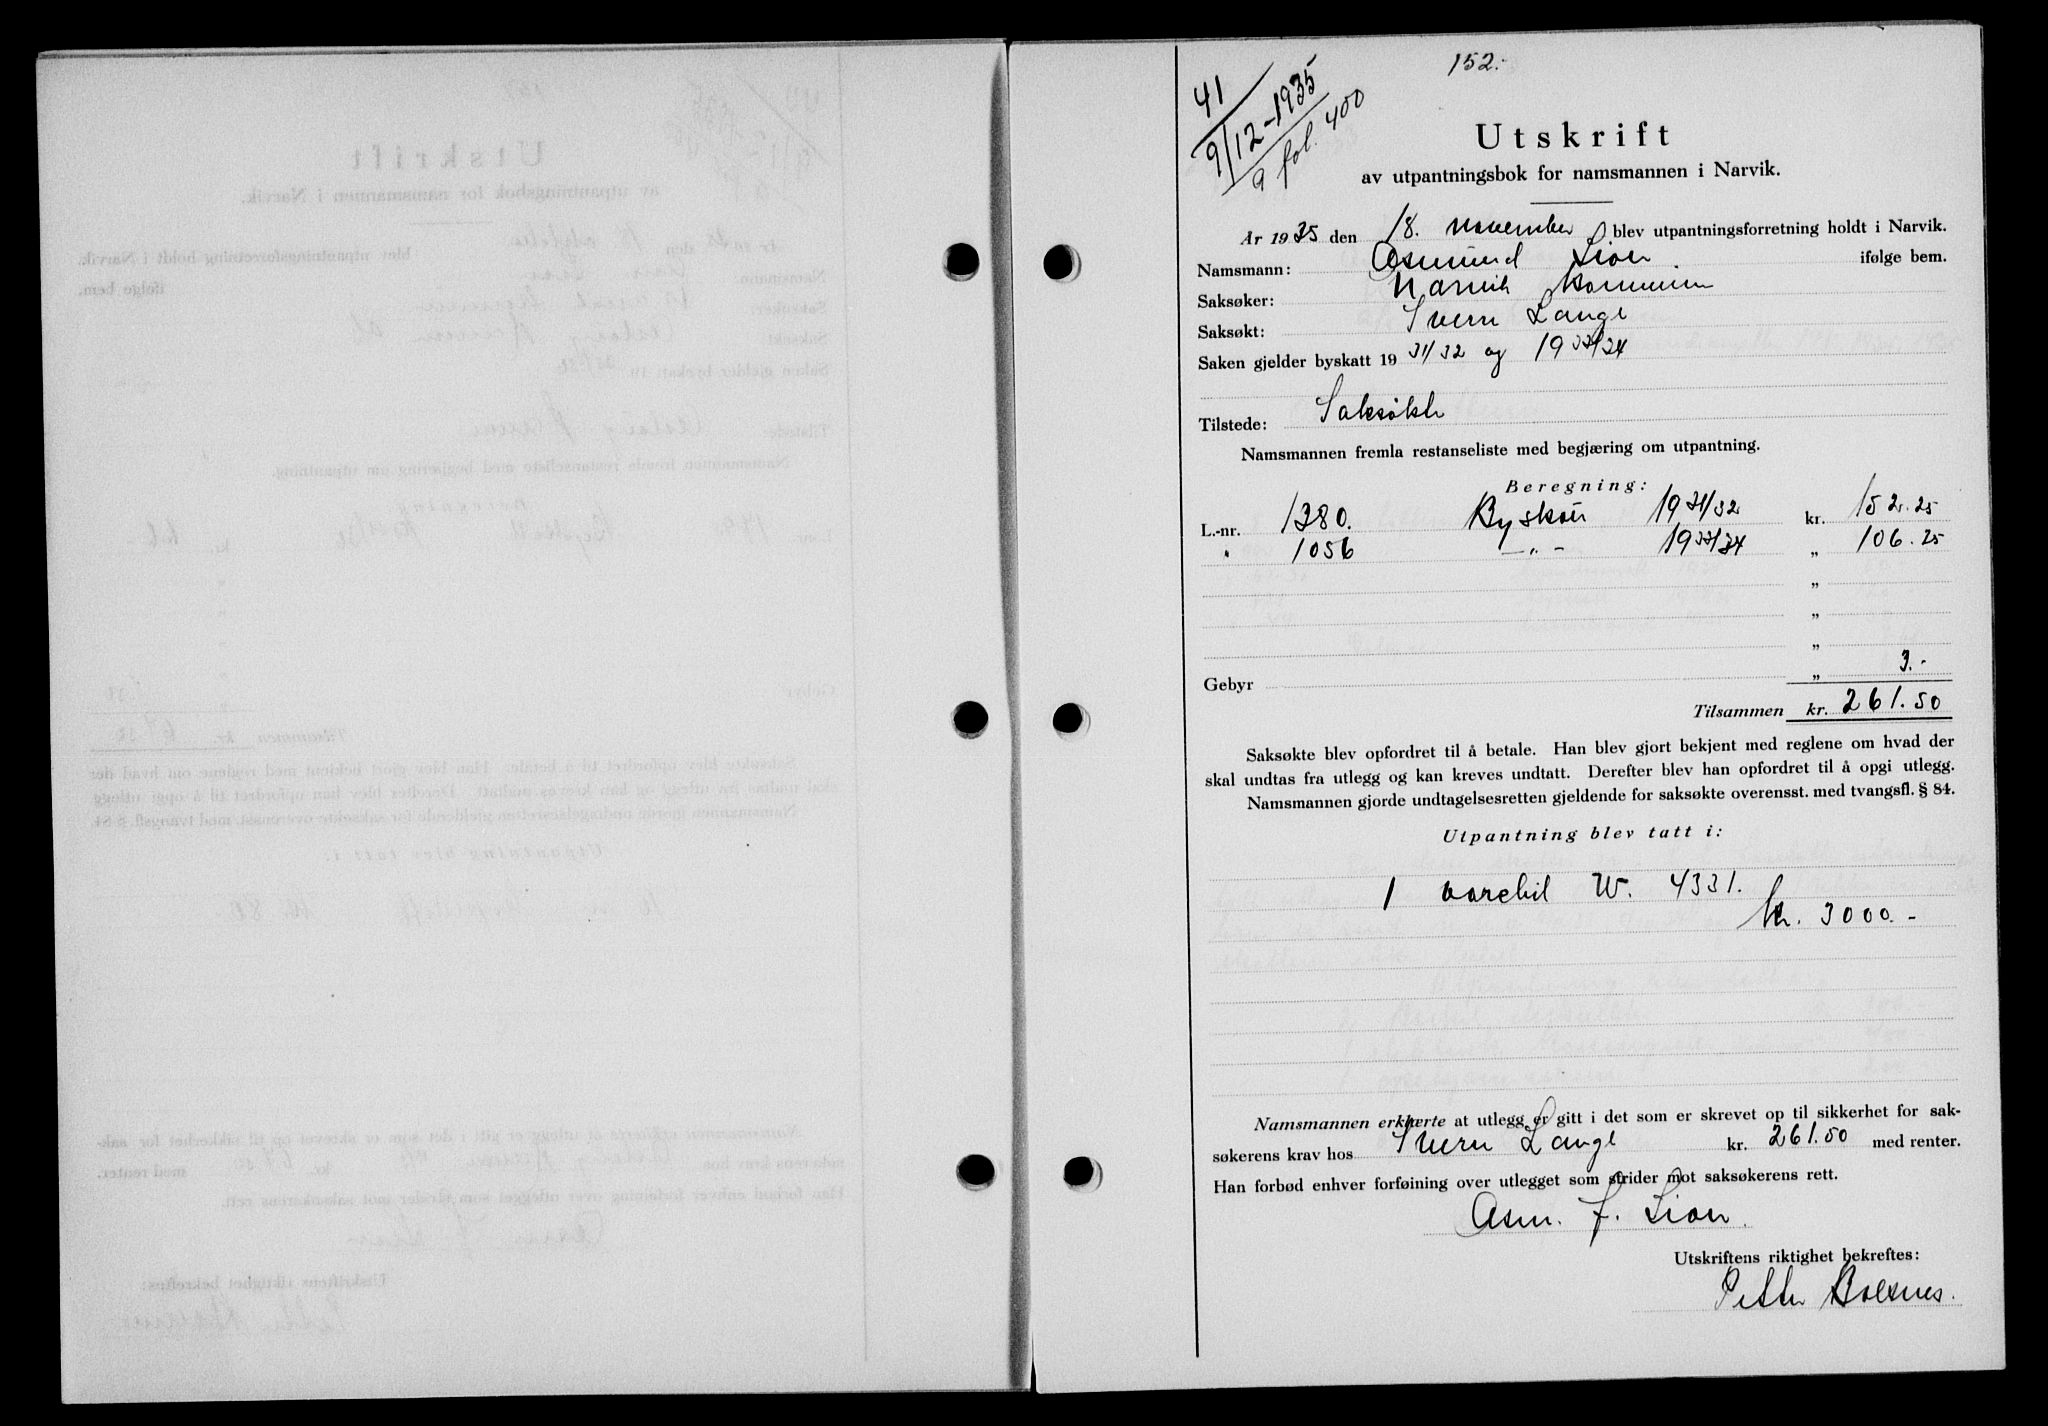 152.-
41
9/12-1935
9 fol. 400
Utskrift
av utpantningsbok for namsmannen i Narvik.
År 1935 den 18. november blev utpantningsforretning holdt i Narvik.
Namsmann: Asmund Lion ifølge bem.
Saksøker: Narvik kommune
Saksøkt: Sverre Lange
Saken gjelder byskatt 1931/32 og 1933/34
Tilstede: Saksøkte
Namsmannen fremla restanseliste med begjæring om utpantning.
Beregning:
L.-nr. 1380. Byskatt 1931/32 kr. 152.25
" 1056 -"- 1933/34 „ 106.25
„
„
„
Gebyr „ 3.-
Tilsammen kr. 261.50
Saksøkte blev opfordret til å betale. Han blev gjort bekjent med reglene om hvad der
skal undtas fra utlegg og kan kreves undtatt. Derefter blev han opfordret til å opgi utlegg.
Namsmannen gjorde undtagelsesretten gjeldende for saksøkte overensst. med tvangsfl. § 84.
Utpantning blev tatt i:
1 varebil W. 4331.
kr. 3000.-
Namsmannen erklærte at utlegg er gitt i det som er skrevet op til sikkerhet for sak-
søkerens krav hos Sverre Lange kr. 261.50 med renter.
Han forbød enhver forføining over utlegget som strider mot saksøkerens rett.
Asm. J. Lion.
Utskriftens riktighet bekreftes:
Petter